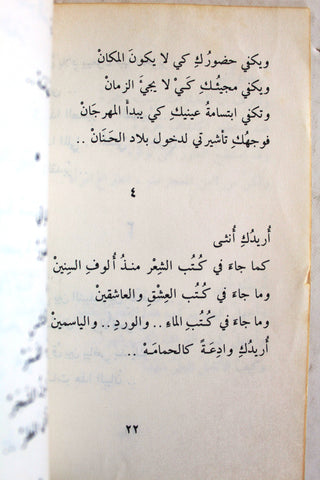 ويكفي حضورُكِ كي لا يكونَ المكانْ
ويكفي مجيئُكِ كَيْ لا يجئَ الزمانْ
وتكفي ابتسامةُ عينيكِ كي يبدأَ المهرجَانْ
فوجهُكِ تأشيرتي لدخول بلاد الحَنَانْ ..
٤
أُريدُكِ أُنثى
كما جاءَ في كُتُب الشِعْر منذُ أُلوفِ السنينْ
وما جاءَ في كُتُب العِشْقِ والعاشقينْ
وما جاءَ في كُتُبِ الماءِ .. والوردِ .. والياسمينْ
أُريدُكِ وادِعَةً كالحمامَةْ ..
٢٢